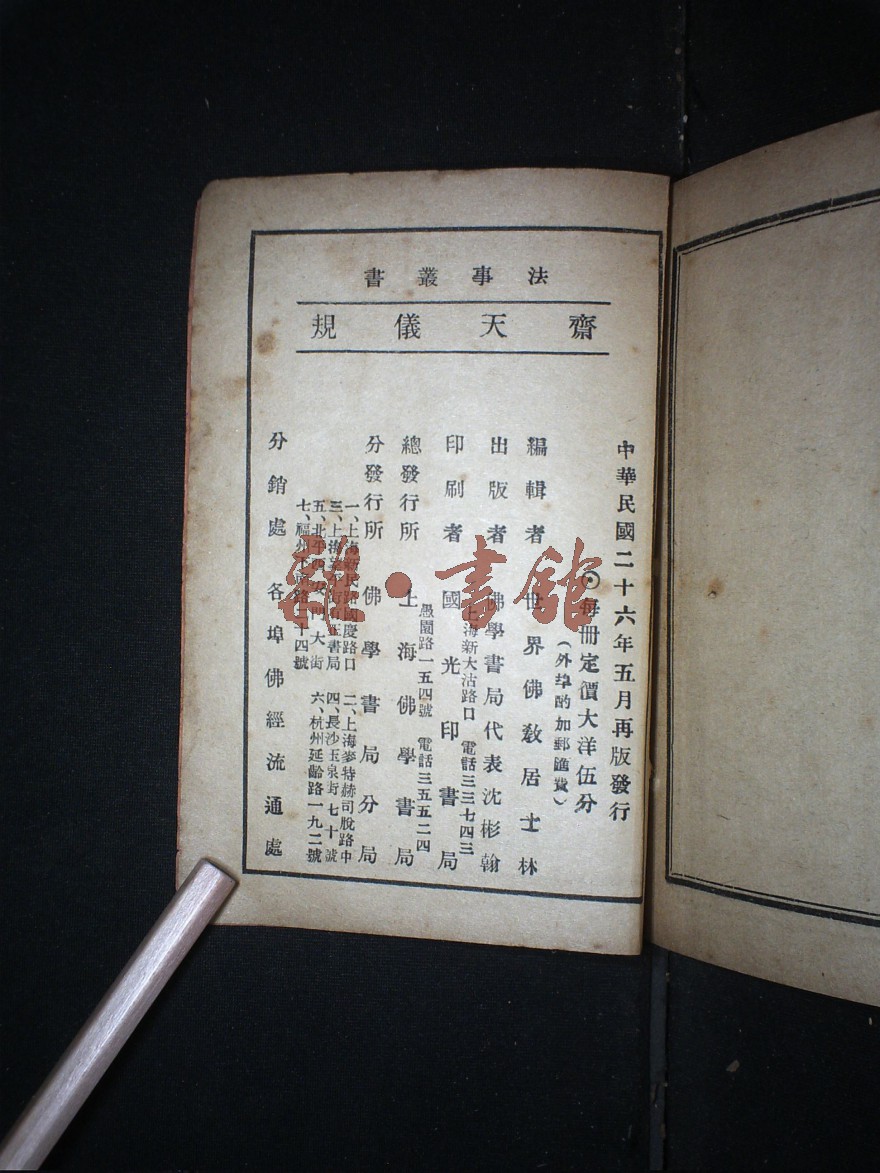 法事叢書
齋天儀規
中華民國二十六年五月再版發行
◉每冊定價大洋伍分
（外埠酌加郵匯費）
編輯者 世界佛教居士林
出版者 佛學書局代表沈彬翰
上海新大沽路口 電話三三七四三
印刷者 國光印書局
愚園路一五四號 電話三五五二四
總發行所 上海佛學書局
分發行所 佛學書局分局
一、上海新民路國慶路口 二、上海麥特赫司脫路中
三、上海 街有正書局 四、長沙玉泉街七十號
五、北平西安門大街 六、杭州延齡路一九二號
七、福州 路二十四號
分銷處 各埠佛經流通處
雜·書館